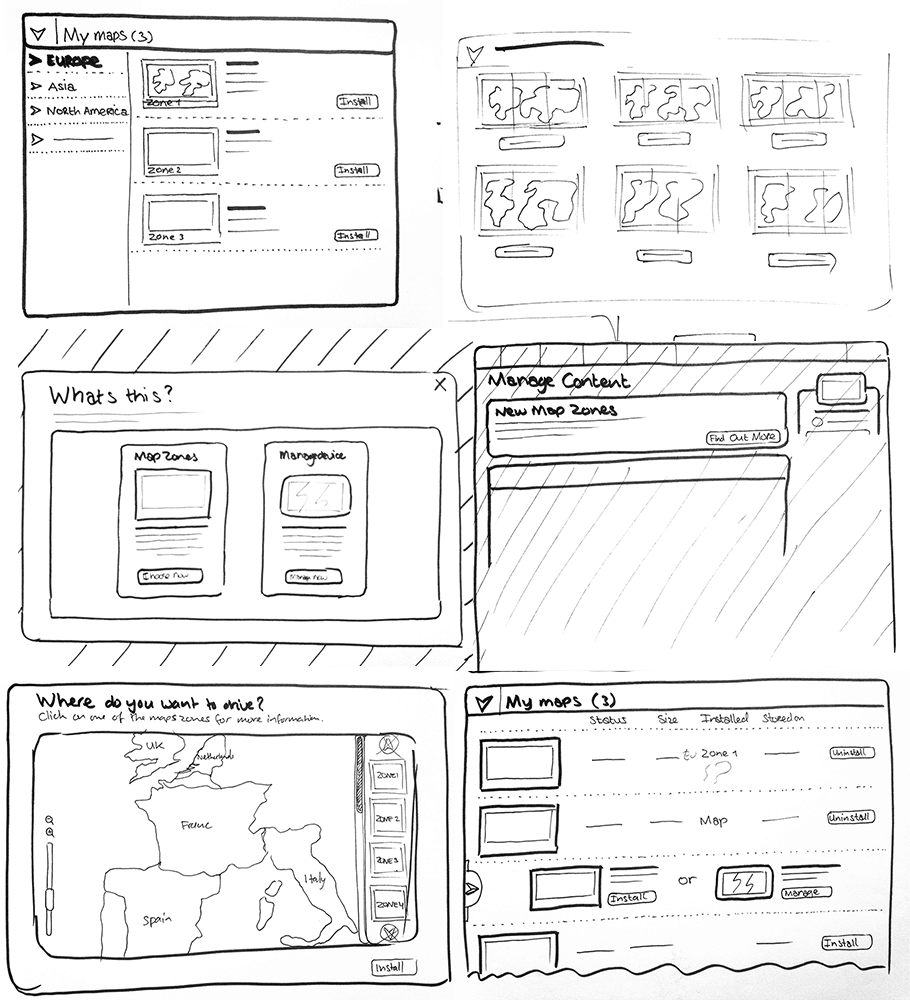 My maps (3)
EUROPE
Asia
North America
Zone 1
Install
Zone 2
Install
Zone 3
Install
Whats this?
X
Map Zones
Manage device
Choose now
Manage now
Manage Content
New Map Zones
Find Out More
Where do you want to drive?
Click on one of the maps zones for more information.
UK
Netherlands
France
Italy
Spain
ZONE1
ZONE 2
ZONE 3
ZONE4
Install
My maps (3)
Status Size Installed Stored on
Zone 1
Uninstall
Map
Uninstall
or
Install
Manage
Install